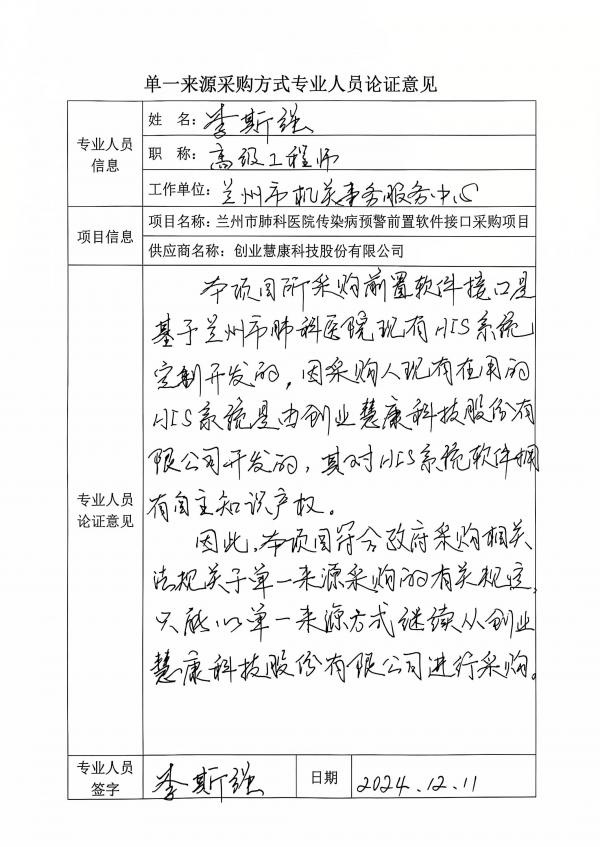 单一来源采购方式专业人员论证意见
专业人员
信息
姓 名：李斯强
职 称：高级工程师
工作单位：兰州市机关事务服务中心
项目信息
项目名称：兰州市肺科医院传染病预警前置软件接口采购项目
供应商名称：创业慧康科技股份有限公司
专业人员
论证意见
本项目所采购前置软件接口是
基于兰州市肺科医院现有HIS系统
定制开发的，因采购人现有在用的
HIS系统是由创业慧康科技股份有
限公司开发的，其对HIS系统软件拥
有自主知识产权。
因此，本项目符合政府采购相关
法规关于单一来源采购的有关规定，
只能以单一来源方式继续从创业
慧康科技股份有限公司进行采购。
专业人员
签字
李斯强
日期
2024.12.11